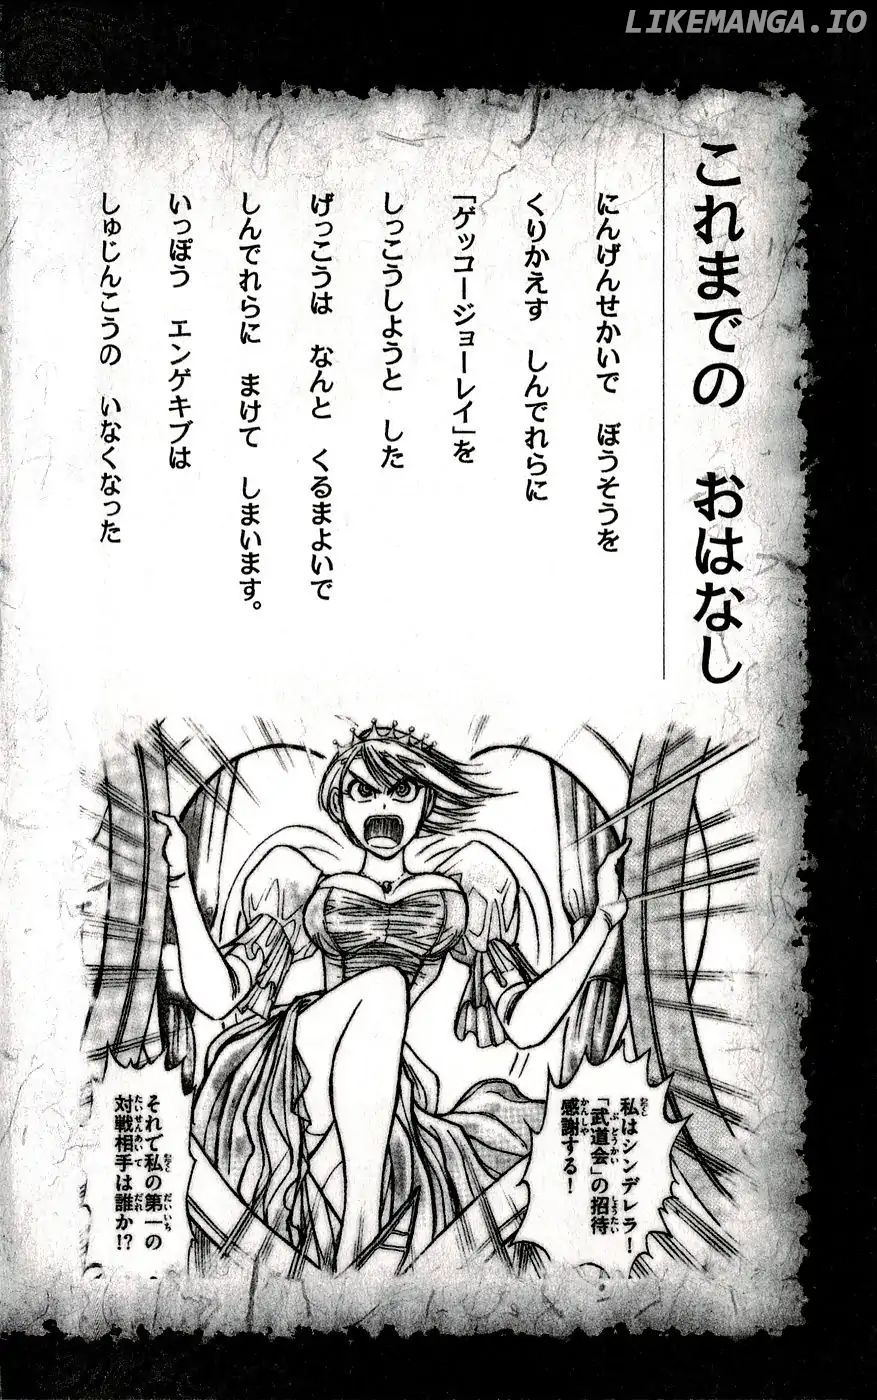 LIKEMANGA.IO
これまでの　おはなし
にんげんせかいで　ぼうそうを
くりかえす　しんでれらに
「ゲッコージョーレイ」を
しっこうしようと　した
げっこうは　なんと　くるまよいで
しんでれらに　まけて　しまいます。
いっぽう　エンゲキブは
しゅじんこうの　いなくなった
私はシンデレラ！
「武道会」の招待
感謝する！
それで私の第一の
対戦相手は誰か!?